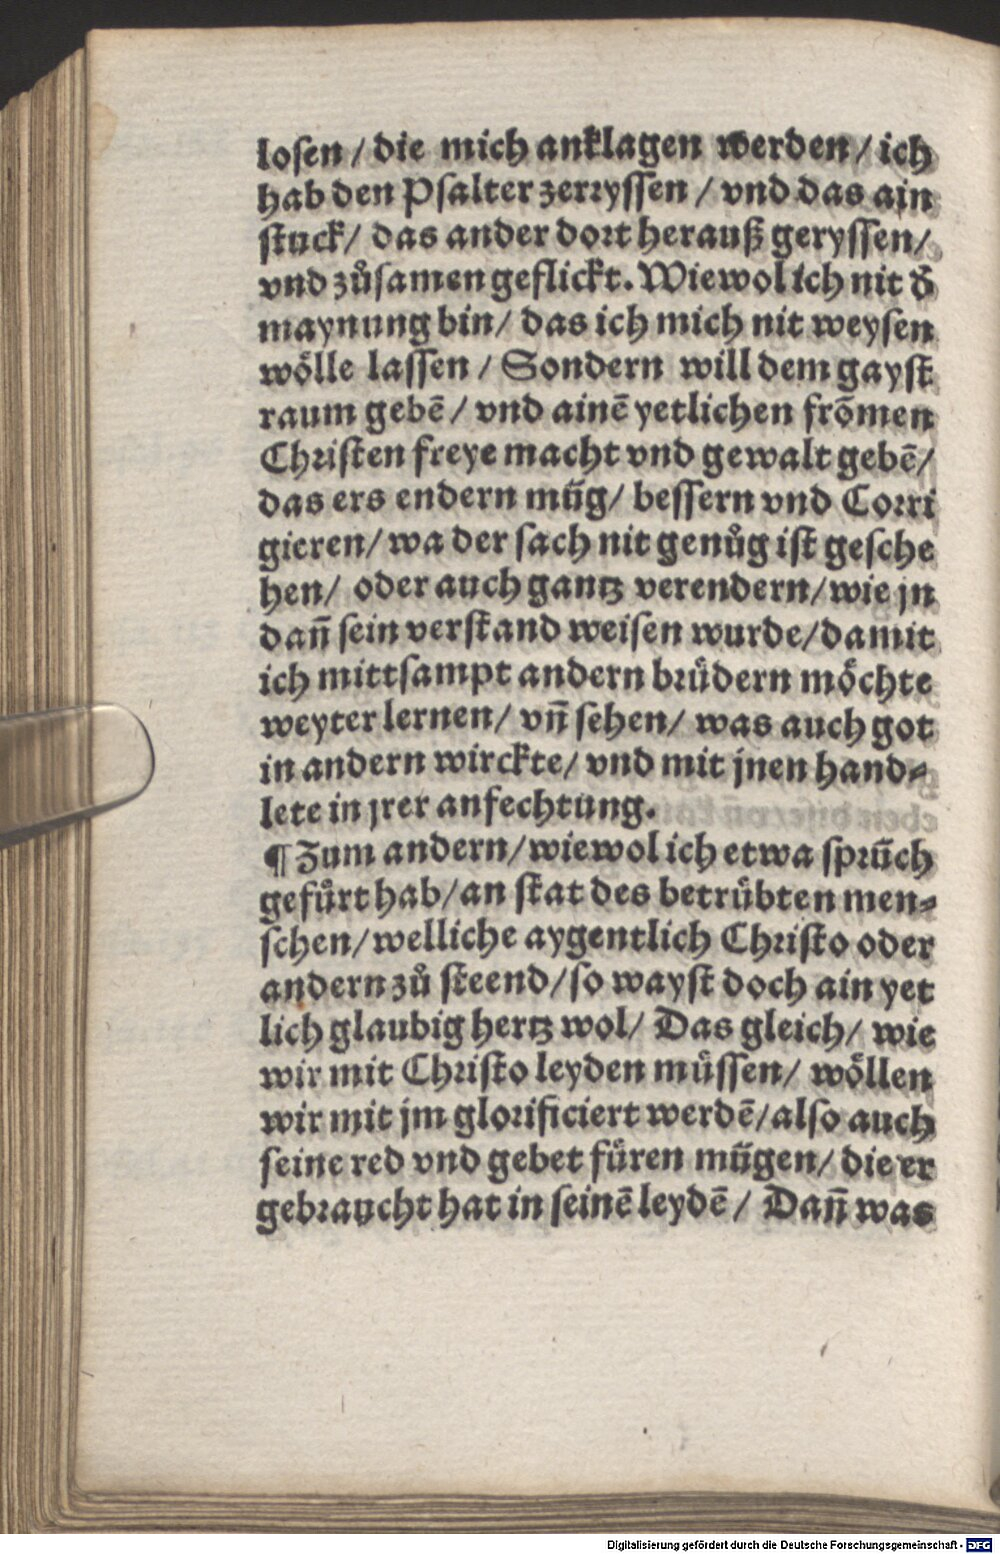 losen / die mich anklagen werden / ich
hab den Psalter zerryssen / vnd das ain
stuck / das ander dort herauß geryssen /
vnd zůsamen geflickt. Wiewol ich nit đ
maynung bin / das ich mich nit weysen
woͤlle lassen / Sondern will dem gayst
raum gebē / vnd ainē yetlichen frõmen
Christen freye macht vnd gewalt gebē /
das ers endern muͤg / bessern vnd Corri
gieren / wa der sach nit genůg ist gesche
hen / oder auch gantz verendern / wie jn
dañ sein verstand weisen wurde / damit
ich mittsampt andern bruͤdern moͤchte
weyter lernen / vñ sehen / was auch got
in andern wirckte / vnd mit jnen hand⸗
lete in jrer anfechtung.
¶ Zum andern / wiewol ich etwa spruͤch
gefuͤrt hab / an stat des betruͤbten men⸗
schen / welliche aygentlich Christo oder
andern zů steend / so wayst doch ain yet
lich glaubig hertz wol / Das gleich / wie
wir mit Christo leyden muͤssen / woͤllen
wir mit jm glorificiert werdē / also auch
seine red vnd gebet fuͤren muͤgen / die er
gebraucht hat in seinē leydē / Dañ was
Digitalisierung gefördert durch die Deutsche Forschungsgemeinschaft - DFG